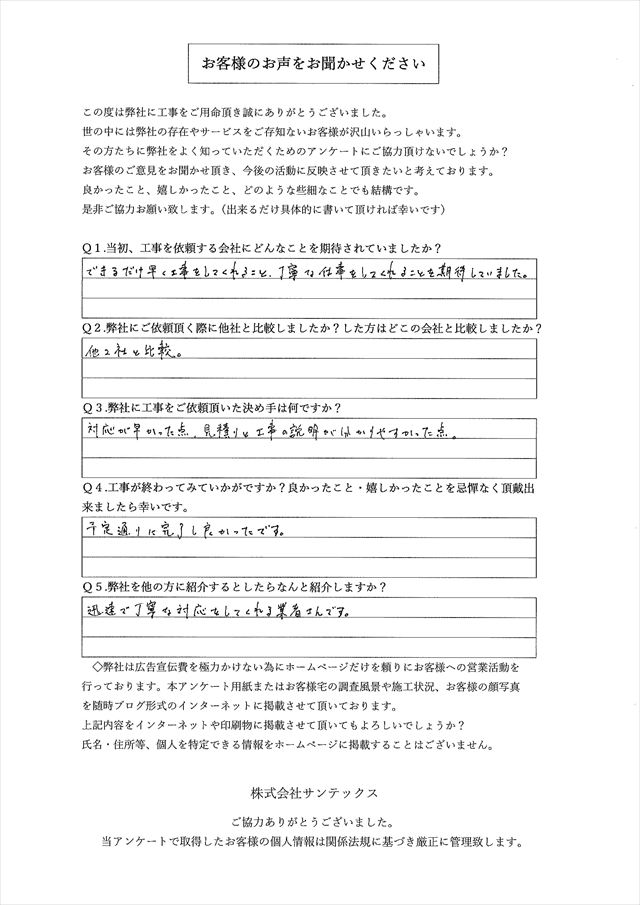 お客様のお声をお聞かせください
この度は弊社に工事をご用命頂き誠にありがとうございました。
世の中には弊社の存在やサービスをご存知ないお客様が沢山いらっしゃいます。
その方たちに弊社をよく知っていただくためのアンケートにご協力頂けないでしょうか？
お客様のご意見をお聞かせ頂き、今後の活動に反映させて頂きたいと考えております。
良かったこと、嬉しかったこと、どのような些細なことでも結構です。
是非ご協力お願い致します。（出来るだけ具体的に書いて頂ければ幸いです）
Q１.当初、工事を依頼する会社にどんなことを期待されていましたか？
できるだけ早く工事をしてくれること、丁寧な仕事をしてくれることを期待していました。
Q２.弊社にご依頼頂く際に他社と比較しましたか？した方はどこの会社と比較しましたか？
他２社と比較。
Q３.弊社に工事をご依頼頂いた決め手は何ですか？
対応が早かった点、見積りと工事の説明が分かりやすかった点。
Q４.工事が終わってみていかがですか？良かったこと・嬉しかったことを忌憚なく頂戴出
来ましたら幸いです。
予定通りに完了し良かったです。
Q５.弊社を他の方に紹介するとしたらなんと紹介しますか？
迅速で丁寧な対応をしてくれる業者さんです。
◇弊社は広告宣伝費を極力かけない為にホームページだけを頼りにお客様への営業活動を
行っております。本アンケート用紙またはお客様宅の調査風景や施工状況、お客様の顔写真
を随時ブログ形式のインターネットに掲載させて頂いております。
上記内容をインターネットや印刷物に掲載させて頂いてもよろしいでしょうか？
氏名・住所等、個人を特定できる情報をホームページに掲載することはございません。
株式会社サンテックス
ご協力ありがとうございました。
当アンケートで取得したお客様の個人情報は関係法規に基づき厳正に管理致します。